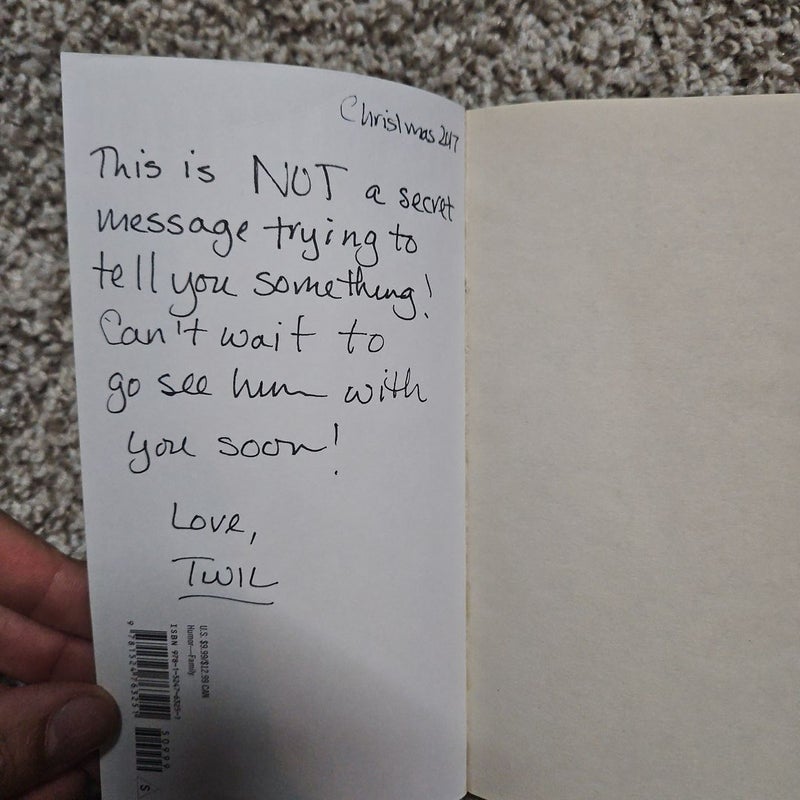 Christmas 2017
This is NOT a secret
message trying to
tell you something!
Can't wait to
go see him with
you soon!
Love,
TWIL
U.S. $9.99/$12.99 CAN
Humor—Family
ISBN 978-1-5247-6325-1
50999
S